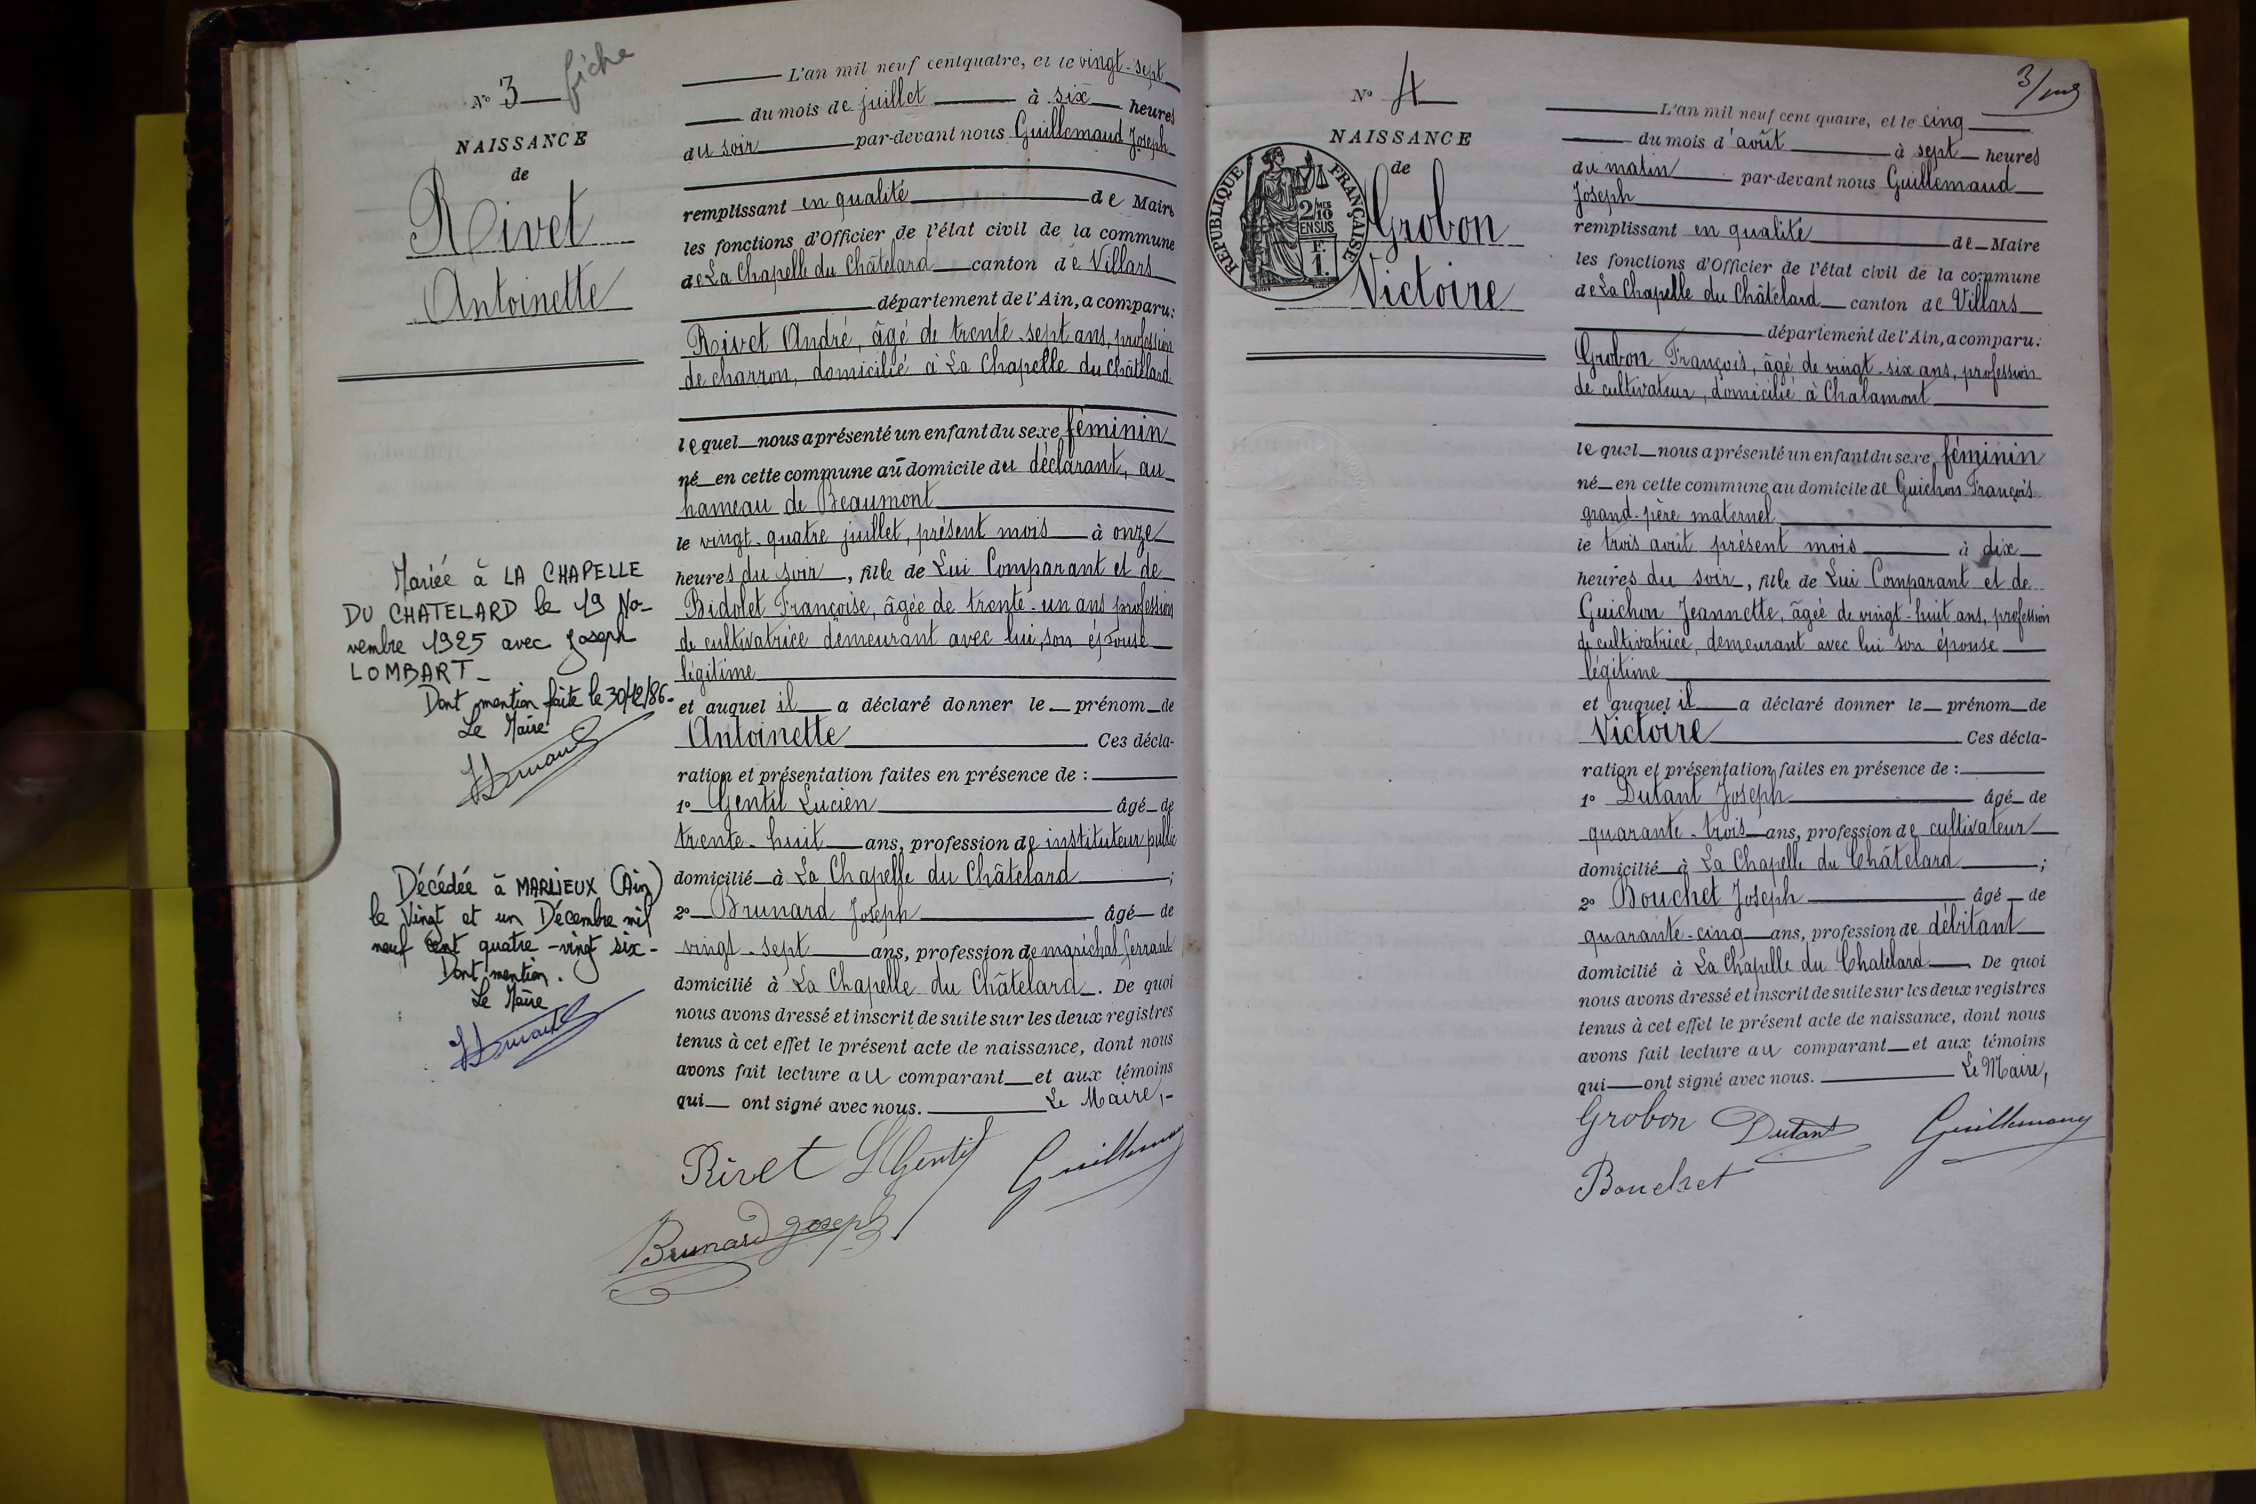 N° 3 fiche
NAISSANCE
de
Rivet
Antoinette
Mariée à LA CHAPELLE
DU CHATELARD le 19 No-
vembre 1925 avec Joseph
LOMBART_
Dont mention faite le 30/12/86_
Le Maire
Décédée à MARLIEUX (Ain)
le Vingt et un Décembre mil
neuf cent quatre-vingt six_
Dont mention.
Le Maire
L'an mil neuf cent quatre, et le vingt-sept
du mois de juillet à six heures
du soir par-devant nous Guillemaud Joseph
remplissant en qualité de Maire
les fonctions d'Officier de l'état civil de la commune
de La Chapelle du Châtelard canton de Villars
département de l'Ain, a comparu:
Rivet André, âgé de trente-sept ans, profession
de charron, domicilié à La Chapelle du Châtelard
lequel nous a présenté un enfant du sexe féminin
né en cette commune au domicile du déclarant, au
hameau de Beaumont
le vingt-quatre juillet, présent mois à onze
heures du soir, fille de Lui Comparant et de
Bidolet Françoise, âgée de trente-un ans profession
de cultivatrice demeurant avec lui, son épouse
légitime
et auquel il a déclaré donner le prénom de
Antoinette Ces décla-
ration et présentation faites en présence de :
1° Gentil Lucien âgé de
trente-huit ans, profession de instituteur public
domicilié à La Chapelle du Châtelard ;
2° Brunard Joseph âgé de
vingt-sept ans, profession de maréchal ferrant
domicilié à La Chapelle du Châtelard. De quoi
nous avons dressé et inscrit de suite sur les deux registres
tenus à cet effet le présent acte de naissance, dont nous
avons fait lecture au comparant et aux témoins
qui ont signé avec nous. Le Maire,-
Rivet LGentil Guillemaud
Brunard Joseph
3/
N° 4
NAISSANCE
de
Grobon
Victoire
RÉPUBLIQUE FRANÇAISE
2/10 MES
EN SUS
F.
1.
L'an mil neuf cent quatre, et le cinq
du mois d'août à sept heures
du matin par-devant nous Guillemaud
Joseph
remplissant en qualité de Maire
les fonctions d'Officier de l'état civil de la commune
de La Chapelle du Châtelard canton de Villars
département de l'Ain, a comparu:
Grobon François, âgé de vingt-six ans, profession
de cultivateur, domicilié à Chalamont
lequel nous a présenté un enfant du sexe féminin
né en cette commune au domicile de Guichon François
grand-père maternel
le trois août présent mois à dix
heures du soir, fille de Lui Comparant et de
Guichon Jeannette, âgée de vingt-huit ans, profession
de cultivatrice, demeurant avec lui son épouse
légitime
et auquel il a déclaré donner le prénom de
Victoire Ces décla-
ration et présentation faites en présence de :
1° Dutant Joseph âgé de
quarante-trois ans, profession de cultivateur
domicilié à La Chapelle du Châtelard ;
2° Bouchet Joseph âgé de
quarante-cinq ans, profession de débitant
domicilié à La Chapelle du Chatelard. De quoi
nous avons dressé et inscrit de suite sur les deux registres
tenus à cet effet le présent acte de naissance, dont nous
avons fait lecture au comparant et aux témoins
qui ont signé avec nous. Le Maire,
Grobon Dutant Guillemaud
Bouchet